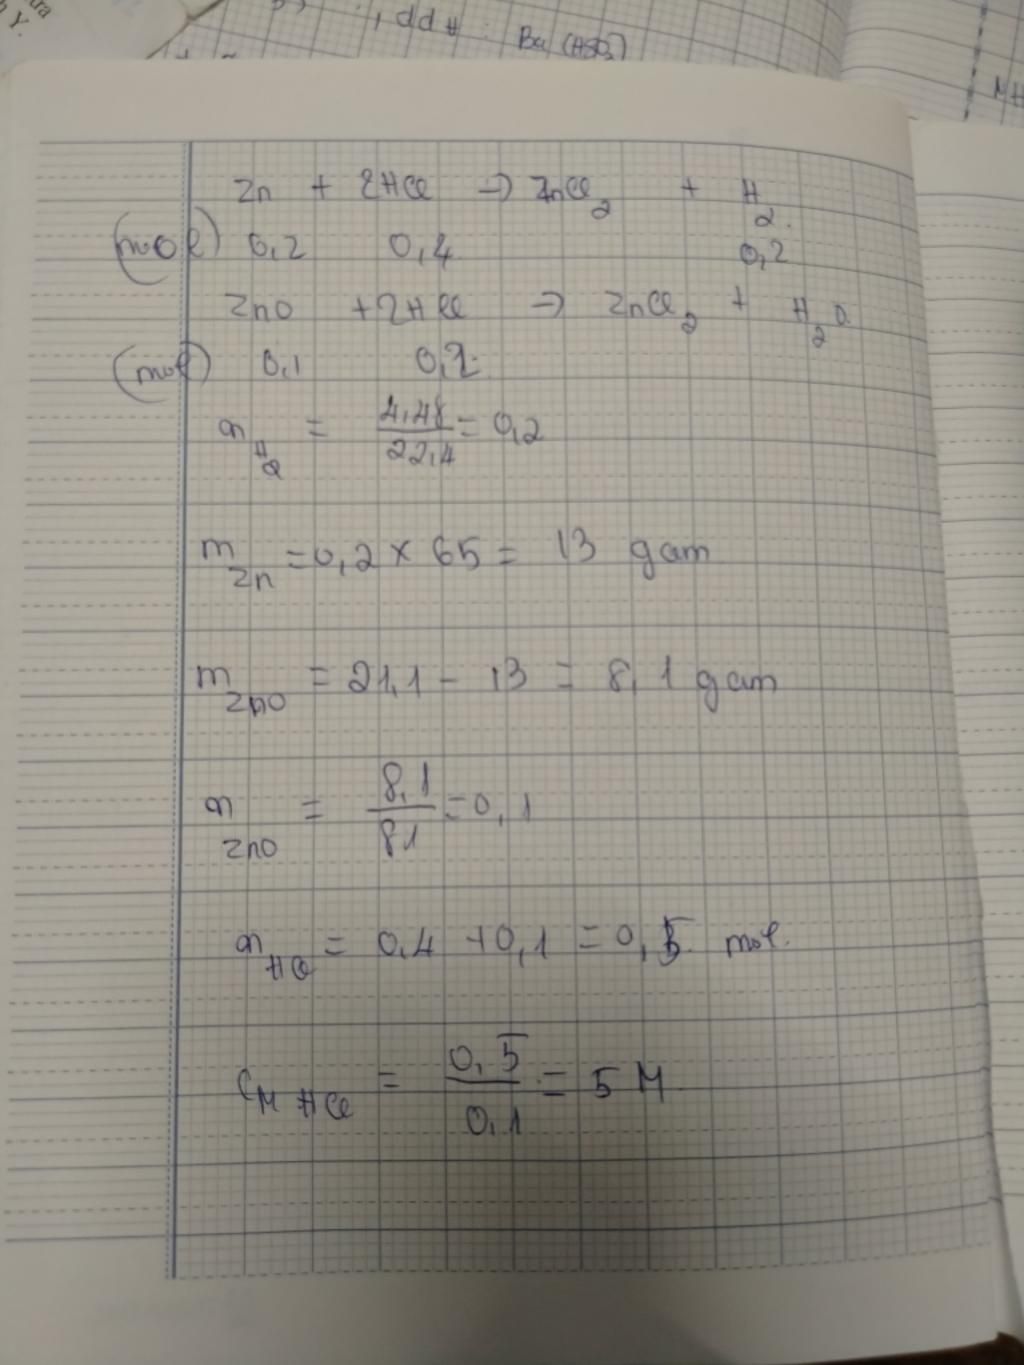 ddH
Ba(HSO3)
Y.
Zn + 2HCl → ZnCl2 + H2.
(mol) 0,2 0,4 0,2
ZnO + 2HCl → ZnCl2 + H2O
(mol) 0,1 0,2
n H2 = 4,48/22,4 = 0,2
m Zn = 0,2 × 65 = 13 gam
m ZnO = 21,1 - 13 = 8,1 gam
n ZnO = 8,1/81 = 0,1
n HCl = 0,4 + 0,1 = 0,5 mol.
CM HCl = 0,5/0,1 = 5 M